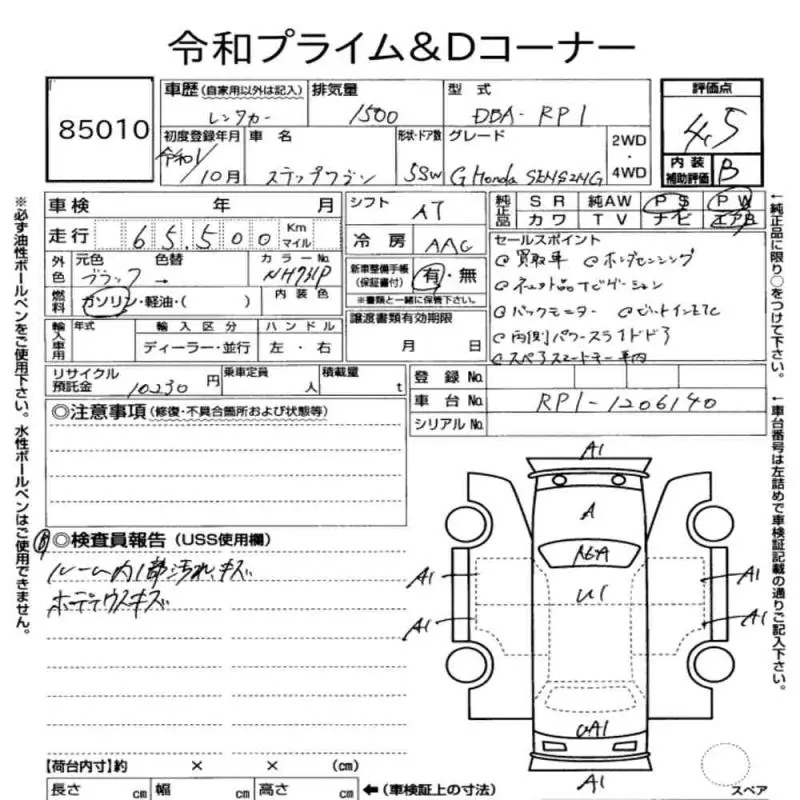 令和プライム&Dコーナー
85010
車歴(自家用以外は記入) 排気量 型式 評価点
レンタカー 1500 DBA-RP1 4.5
初度登録年月 車名 形状・ドア数 グレード 2WD・4WD 内装補助評価 B
令和1/10月 ステップワゴン 5SW G Honda SENSING
車検 年 月 シフト AT 純正品 SR 純AW PS PW
カワ TV ナビ エアB
走行 65,500 Km マイル 冷房 AAC
セールスポイント
外色 元色 色替 カラーNo.
ブラック → NH731P
新車整備手帳(保証書付) 有・無
※書類と一緒に保管下さい。
買取車 ホンダセンシング
ネット品ナビゲーション
バックモニター ビルトインETC
両側パワースライドドア
スペアスマートキー車内
燃料 ガソリン・軽油・( ) 内装色
譲渡書類有効期限
月 日
輸入車用 年式 輸入区分 ハンドル
ディーラー・並行 左・右
リサイクル預託金 10230円 乗車定員 人 積載量 t
登録No.
車台No. RP1-1206140
シリアルNo.
◎注意事項(修復・不具合箇所および状態等)
◎検査員報告(USS使用欄)
ルーム内1部汚れ、キズ
ボディウスキズ
A1
A
A6A
A1 U1 A1
A1 A1
UA1
A1
【荷台内寸】約 × × (cm)
長さ cm 幅 cm 高さ cm ←(車検証上の寸法)
スペア
※必ず油性ボールペンをご使用下さい。水性ボールペンはご使用できません。
←純正品に限り○をつけて下さい。
←車台番号は左詰めで車検証記載の通りご記入下さい。